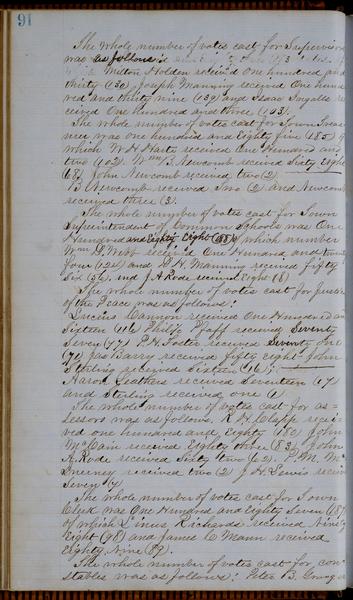 91
The whole number of votes cast for Supervisors
was as follows
Milton Holden received One hundred and
thirty (130) Joseph Manning received One hund
red and thirty nine (139) and Isaac Ingalls re
ceived One hundred and three (103).
The whole number of votes cast for Town Treas
urer was one hundred and Eighty five (185) of
which W H Hartz received One Hundred and
two (102). Wm B. Newcomb received Sixty Eight
(68) John Newcomb received two (2)
B Newcomb received Two (2) and Newcomb
received three (3).
The whole number of votes cast for Town
Superintendent of Common Schools was One
Hundred and Eighty Eight (188) of which number
Wm D. Webb received One Hundred and twenty
four (124) and W H. Manning received fifty
Six (56) and J A Rode received Eight (8)
The whole number of votes cast for Justice
of the Peace was as follows:
Lucius Cannon received One Hundred and
Sixteen (116) Philip Pfaff received Seventy
Seven (77) P. H. Foster received Seventy one
(71) Jas Barry received fifty eight John
Sterling received Sixteen (16);
Aaron Leathers received Seventeen (17)
and Sterling received one (1)
The whole number of votes cast for as-
sessors was as follows. R. H. Clapp recei-
ved one hundred and Eighty (180) John
McCain received Eighty three (83) John
A. Rode received Sixty two (62). P. M. Mc
Sweeney received two (2) J H. Lewis receiv
Seven (7)
The whole number of votes cast for Town
Clerk was One Hundred and Eighty Seven (187)
of which Linus Richards received Ninety
Eight (98) and James C Mann received
Eighty Nine (89).
The whole number of votes cast for con-
stables was as follows: Peter B.